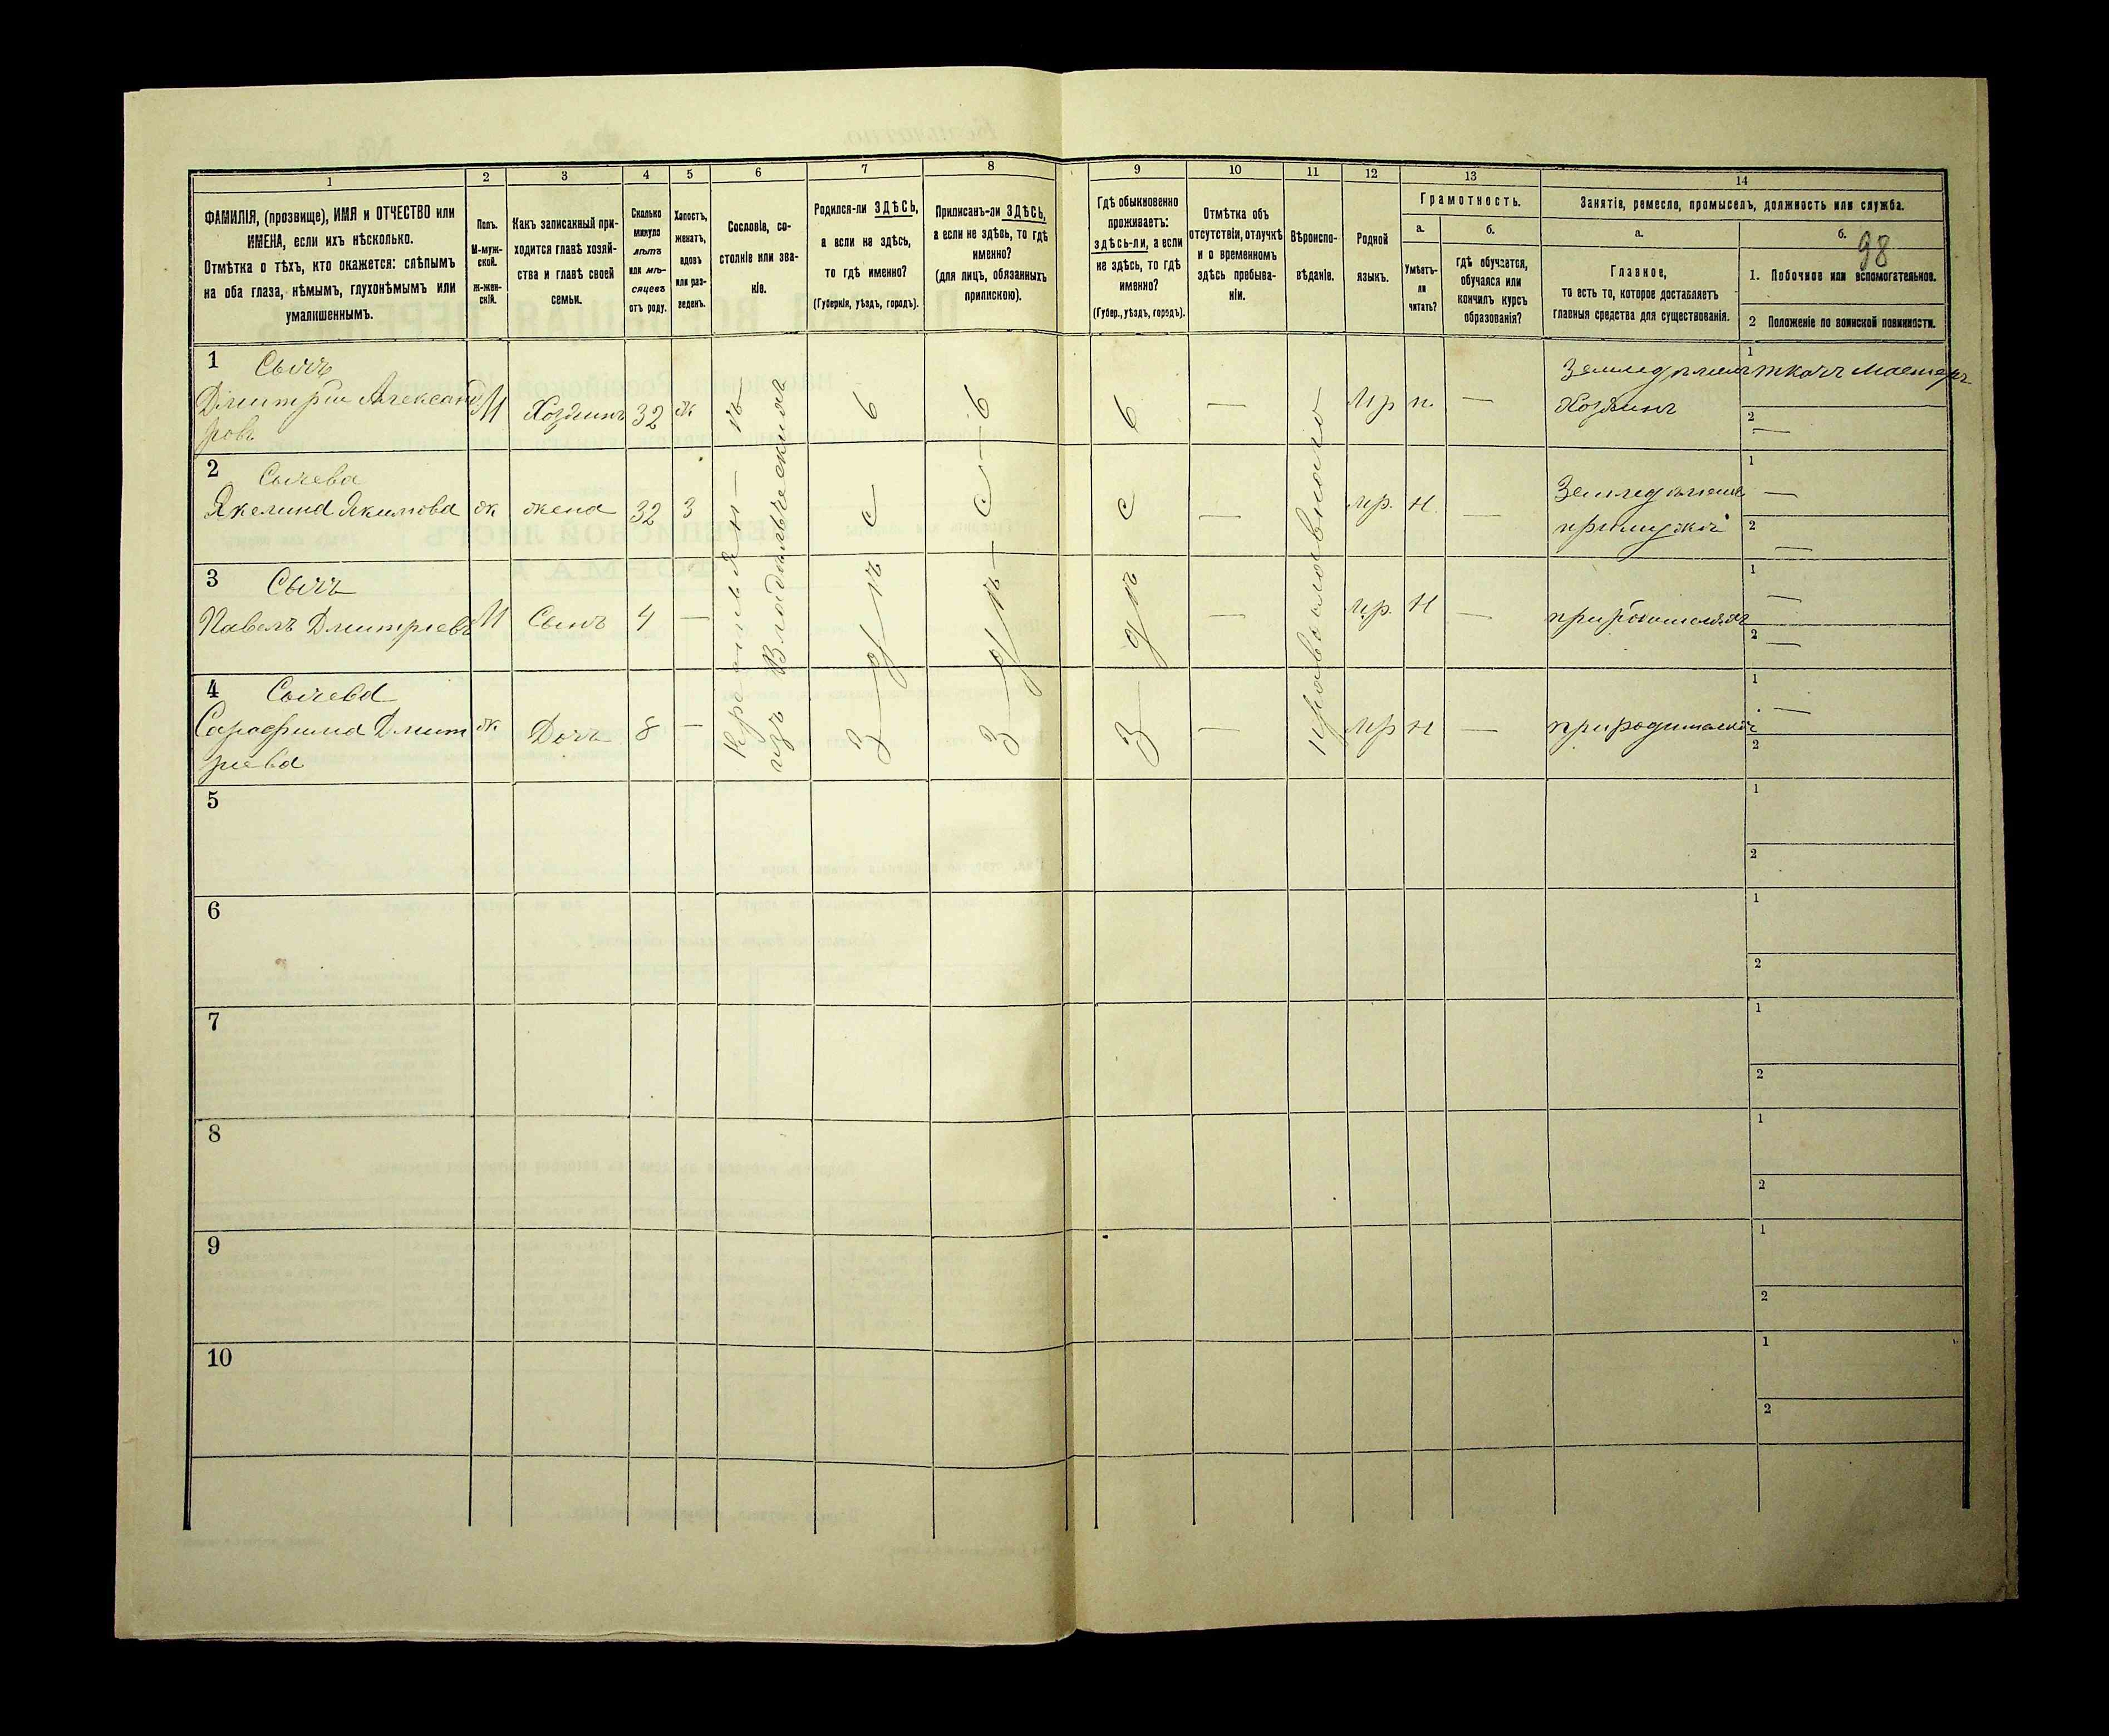 1
2
3
4
5
6
7
8
9
10
11
12
13
14
ФАМИЛІЯ, (прозвище), ИМЯ и ОТЧЕСТВО или
ИМЕНА, если ихъ нѣсколько.
Отмѣтка о тѣхъ, кто окажется: слѣпымъ
на оба глаза, нѣмымъ, глухонѣмымъ или
умалишеннымъ.
Полъ.
М-муж-
ской.
Ж-жен-
скій.
Какъ записанный при-
ходится главѣ хозяй-
ства и главѣ своей
семьи.
Сколько
минуло
лѣтъ
или мѣ-
сяцевъ
отъ роду.
Холостъ,
женатъ,
вдовъ
или раз-
веденъ.
Сословіе, со-
стояніе или зва-
ніе.
Родился-ли ЗДѢСЬ,
а если не здѣсь,
то гдѣ именно?
(Губернія, уѣздъ, городъ).
Приписанъ-ли ЗДѢСЬ,
а если не здѣсь, то гдѣ
именно?
(для лицъ, обязанныхъ
припискою).
Гдѣ обыкновенно
проживаетъ:
здѣсь-ли, а если
не здѣсь, то гдѣ
именно?
(Губер., уѣздъ, городъ).
Отмѣтка объ
отсутствіи, отлучкѣ
и о временномъ
здѣсь пребыва-
ніи.
Вѣроиспо-
вѣданіе.
Родной
языкъ.
Грамотность.
а.
Умѣетъ-
ли
читать?
б.
Гдѣ обучается,
обучался или
кончилъ курсъ
образованія?
Занятіе, ремесло, промыселъ, должность или служба.
а.
Главное,
то есть то, которое доставляетъ
главныя средства для существованія.
б.
98
1. Побочное или вспомогательное.
2 Положеніе по воинской повинности.
1 Сычъ
Дмитрій Александ
ровъ
М Хозяинъ 32 ж
Крестьянъ
изъ Владѣльческихъ
здѣсь
здѣсь
здѣсь
—
православнаго
Мр н. —
Хозяинъ
1 ткачъ Мастеръ
2 —
2 Сычева
Акелина Якимова
ж жена 32 З
—
Мр. Н. —
при мужѣ
1 —
2 —
3 Сычъ
Павелъ Дмитріевъ
М Сынъ 4 —
—
Мр. Н —
1 —
2 —
4 Сычева
Сарафима Дмит
ріева
ж Дочь 8 —
—
Мр Н —
1 —
2
5
1
2
6
1
2
7
1
2
8
1
2
9
1
2
10
1
2